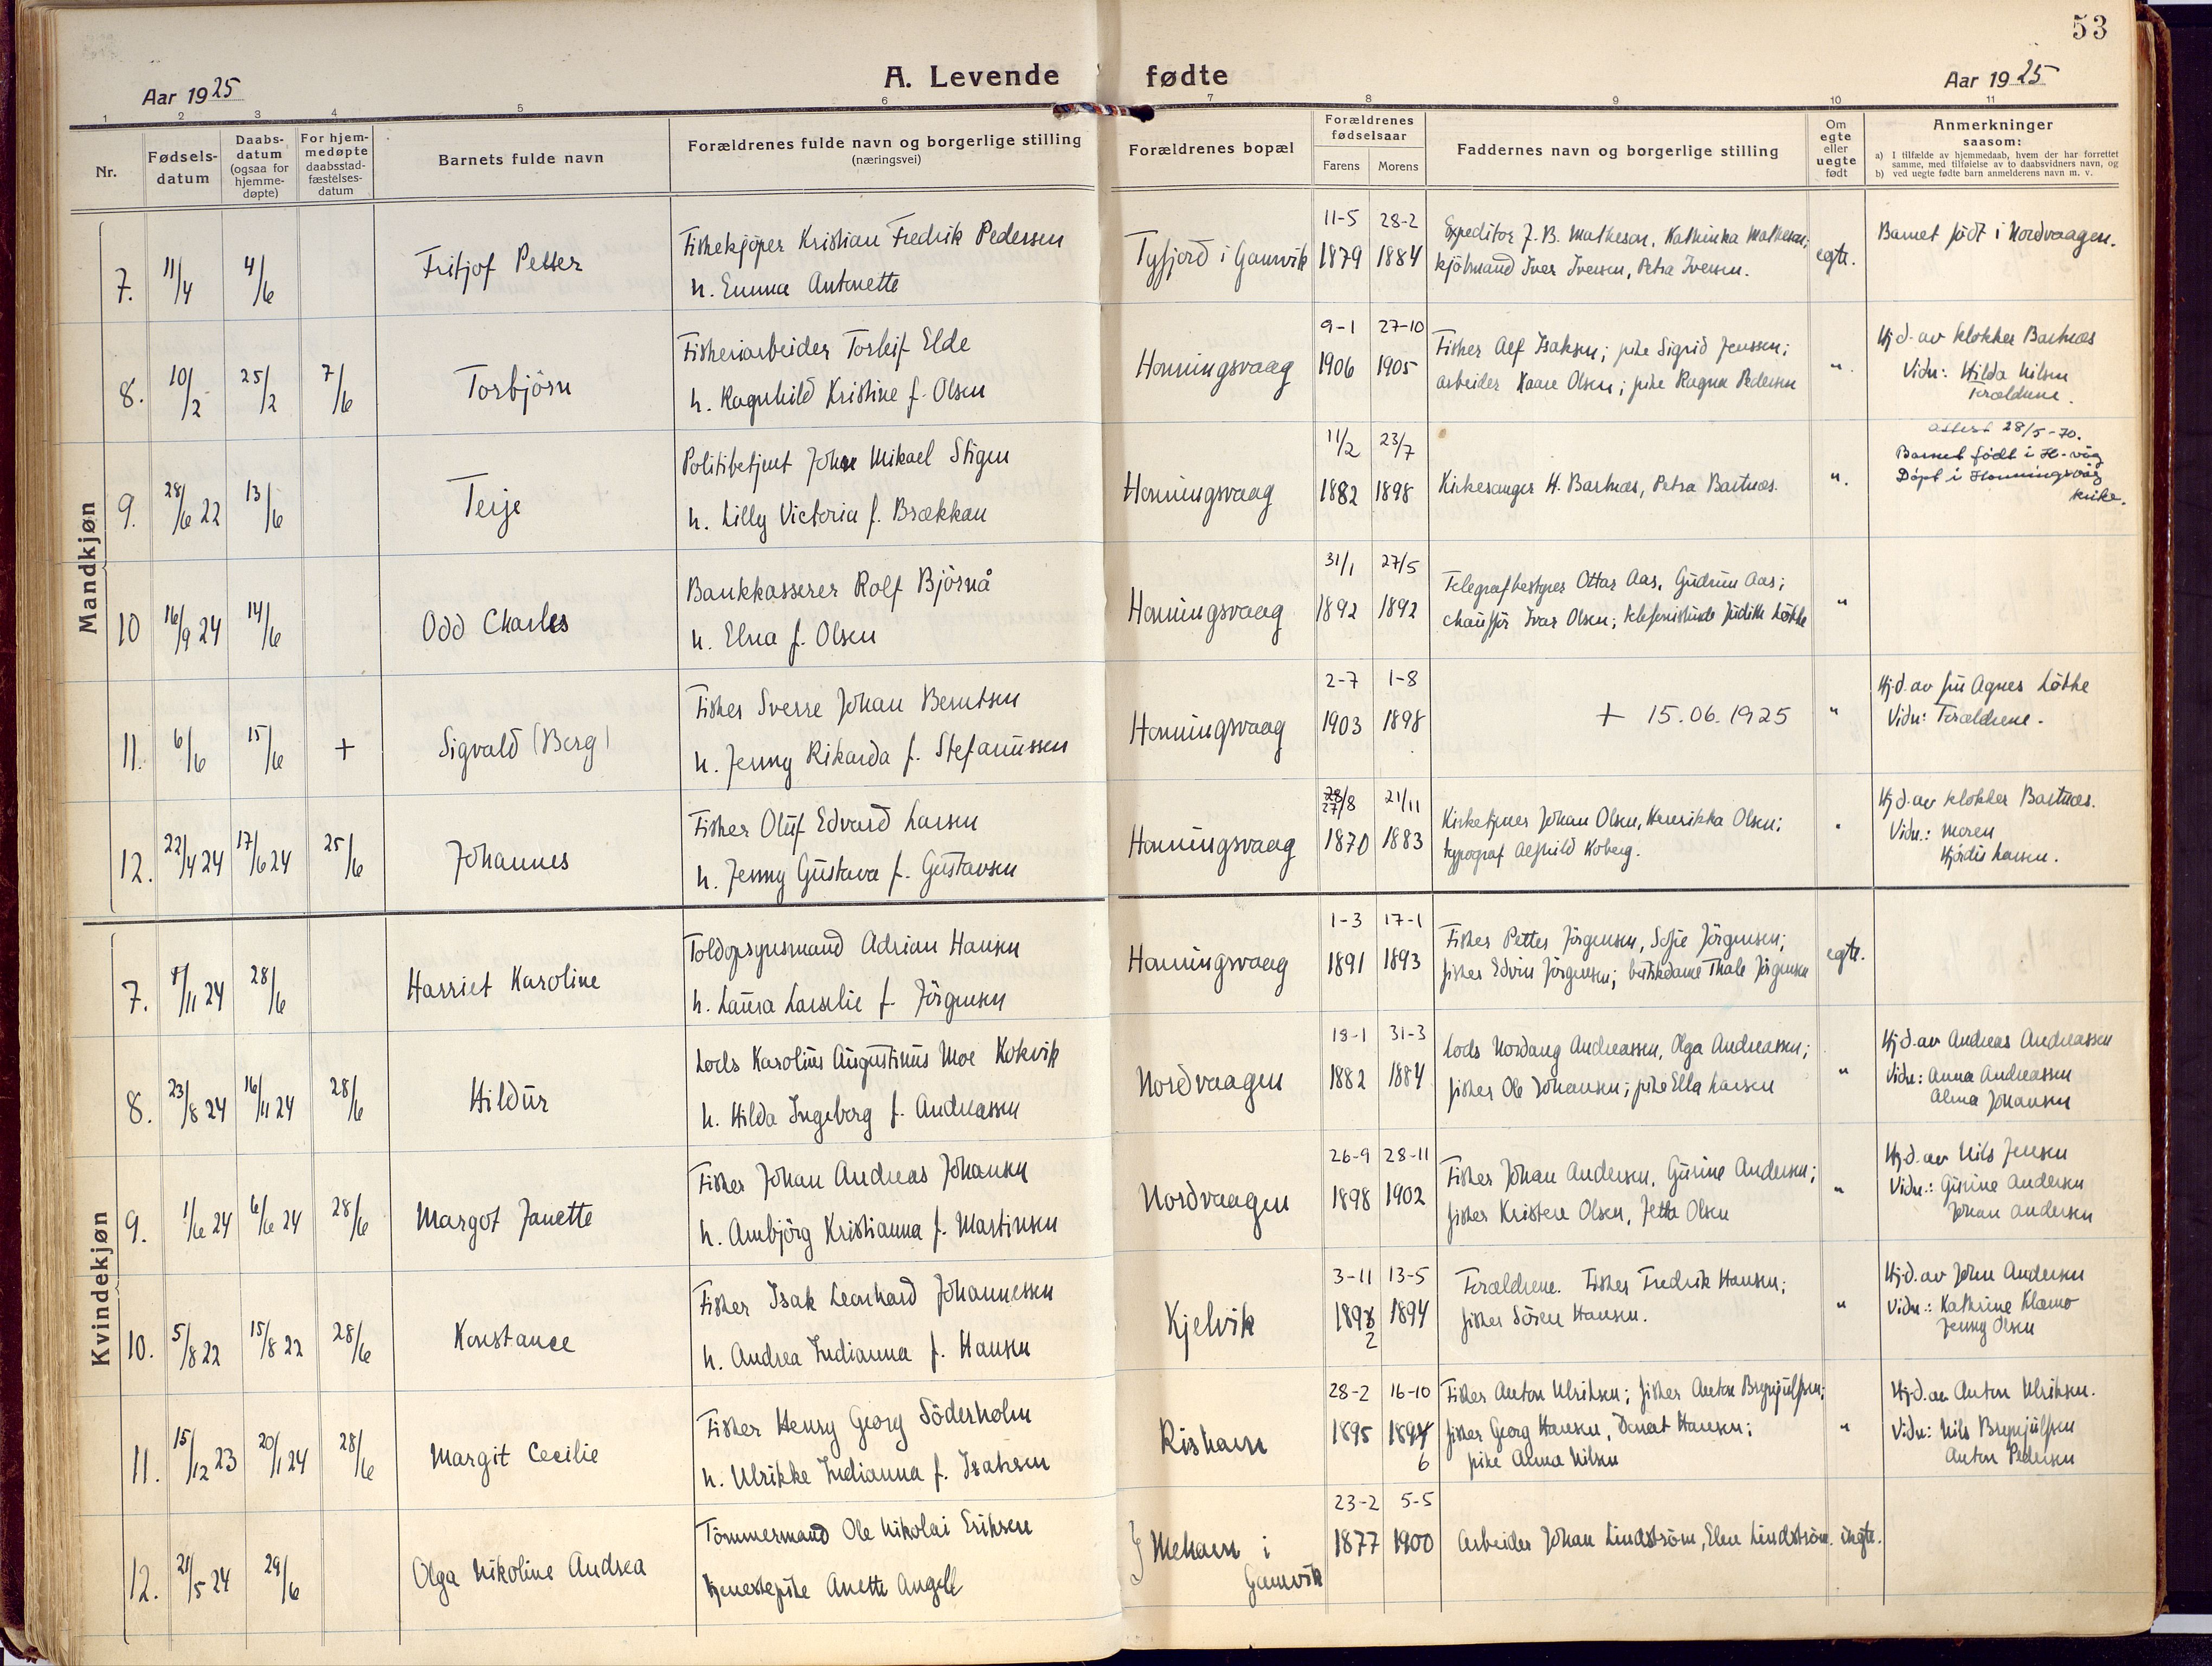 53
Aar 1925
A. Levende fødte
Aar 1925
1 2 3 4 5 6 7 8 9 10 11
Nr.
Fødsels-
datum
Daabs-
datum
(ogsaa for
hjemme-
døpte)
For hjem-
medøpte
daabsstad-
fæstelses-
datum
Barnets fulde navn
Forældrenes fulde navn og borgerlige stilling
(næringsvei)
Forældrenes bopæl
Forældrenes
fødselsaar
Farens Morens
Faddernes navn og borgerlige stilling
Om
egte
eller
uegte
født
Anmerkninger
saasom:
a) I tilfælde av hjemmedaab, hvem der har forrettet
samme, med tilføielse av to daabsvidners navn, og
b) ved uegte fødte barn anmelderens navn m. v.
Mandkjøn
7. 11/4 4/6 Fritjof Petter
Fiskekjöper Kristian Fredrik Pedersen
h. Emma Antonette
Tyfjord i Gamvik
11-5 28-2
1879 1884
Expeditor J. B. Mathesen, Kathinka Mathesen;
kjöbmand Iver Iversen, Petra Iversen.
egte.
Barnet födt i Nordvaagen.
8. 10/2 25/2 7/6 Torbjörn
Fiskeriarbeider Torleif Elde
h. Ragnhild Kristine f. Olsen
Honningsvaag
9-1 27-10
1906 1905
Fisker Alf Isaksen; pike Sigrid Jenssen;
arbeider Kaare Olsen; pike Ragna Pedersen
".
Hj.d. av klokker Bartnæs
Vidn: Hilda Nilsen
Forældrene.
9. 28/6 22 13/6 Terje
Politibetjent Johan Mikael Stigen
h. Lilly Victoria f. Brækkan
Honningsvaag
11/2 23/7
1882 1898
Kirkesanger H. Bartnæs, Petra Bartnæs.
".
attest 28/5-70.
Barnet födt i H-våg
Döpt i Honningsvåg
kirke.
10 16/9 24 14/6 Odd Charles
Bankkasserer Rolf Björnå
h. Elna f. Olsen
Honningsvaag
31/1 27/5
1892 1892
Telegrafbestyrer Ottar Aas, Gudrun Aas;
chaufför Ivar Olsen; telefonistinde Judith Lökke
"
11. 6/6 15/6 + Sigvald (Berg)
Fisker Sverre Johan Berntsen
h. Jenny Rikarda f. Stefanussen
Honningsvaag
2-7 1-8
1903 1898
+ 15.06.1925
"
Hj.d. av fru Agnes Lökke
Vidn: Forældrene.
12. 22/4 24 17/6 24 25/6 Johannes
Fisker Oluf Edvard Larsen
h. Jenny Gustava f. Gustavsen
Honningsvaag
27/8 21/11
1870 1883
Kirketjener Johan Olsen, Henrikka Olsen;
typograf Alfhild Koberg.
"
Hj.d. av klokker Bartnæs.
Vidn.: Moren
Hjördis Larsen.
Kvindekjøn
7. /11 24 28/6 Harriet Karoline
Toldopsynsmand Adrian Hansen
h. Laura Larselie f. Jörgensen
Honningsvaag
1-3 17-1
1891 1893
Fisker Petter Jörgensen, Sofie Jörgensen;
fisker Edvin Jörgensen; butikdame Thale Jörgensen
egte.
8. 23/8 24 16/11 24 28/6 Hildur
Lods Karolius Augustinus Moe Kokvik
h. Hilda Ingeborg f. Andreassen
Nordvaagen
18-1 31-3
1882 1884
Lods Nordang Andreassen, Olga Andreassen;
fisker Ole Johansen; pike Ella Larsen
"
Hj.d. av Andreas Andreassen
Vidn: Anna Andreassen
Alma Johansen
9. 1/6 24 6/6 24 28/6 Margot Janette
Fisker Johan Andreas Johansen
h. Ambjörg Kristianna f. Martinsen
Nordvaagen
26-9 28-11
1898 1902
Fisker Johan Andersen, Gurine Andersen;
fisker Kristen Olsen, Jetta Olsen
"
Hj.d. av Nils Jensen
Vidn.: Gurine Andersen
Johan Andersen
10. 5/8 22 15/8 22 28/6 Konstance
Fisker Isak Leonhard Johannessen
h. Andrea Indianna f. Hansen
Kjelvik
3-11 13-5
1898 1894
2
Forældrene. Fisker Fredrik Hansen;
fisker Sören Hansen.
"
Hj.d. av John Andersen
Vidn.: Kathrine Klæmo
Jenny Olsen
11. 15/12 23 20/1 24 28/6 Margit Cecilie
Fisker Henry Georg Söderholm
h. Ulrikke Indianna f. Isaksen
Rishavn
28-2 16-10
1895 1894
6
Fisker Anton Ulriksen; fisker Anton Brynjulfsen;
fisker Georg Hansen, Danert Hansen;
pike Anna Nilsen
"
Hj.d. av Anton Ulriksen.
Vidn: Nils Brynjulfsen
Anton Pedersen
12. 21/5 24 29/6 Olga Nikoline Andrea
Tömmermand Ole Nikolai Eriksen
tjenestepike Anette Angell
Mehavn i
Gamvik
23-2 5-5
1877 1900
Arbeider Johan Lindström, Elen Lindström.
uegte.